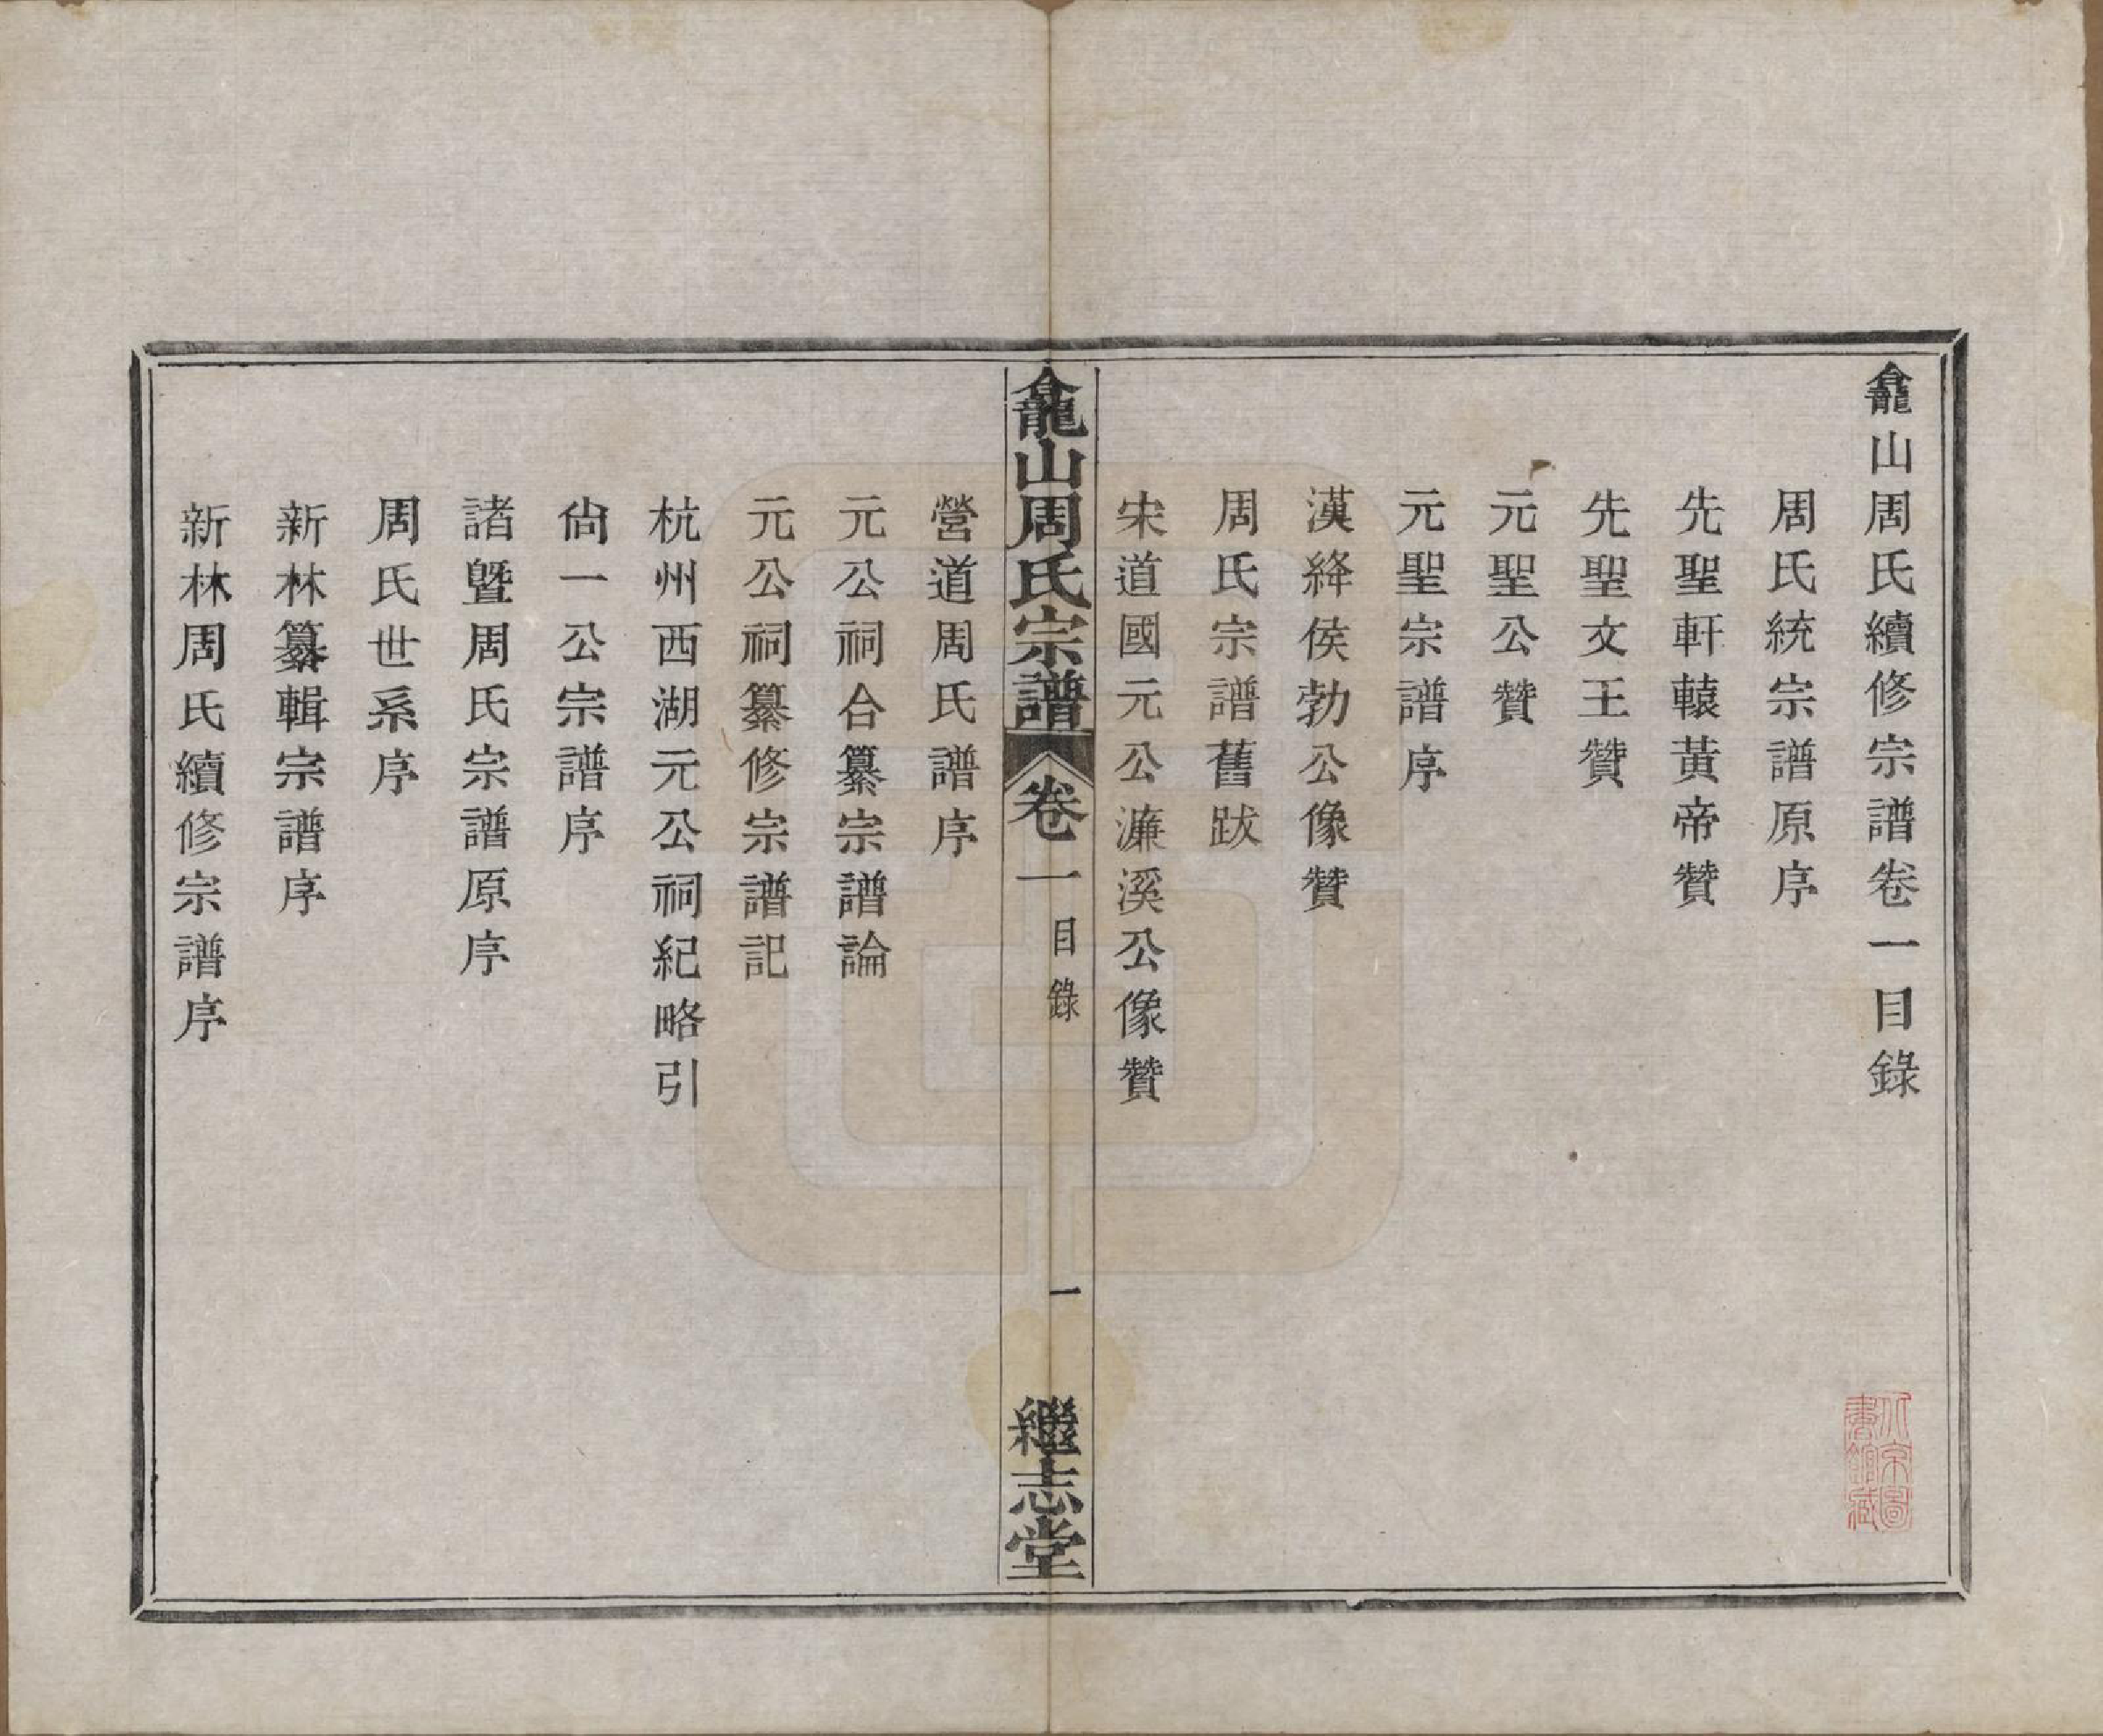 龕山周氏續修宗譜卷一目錄
周氏統宗譜原序
先聖軒轅黃帝贊
先聖文王贊
元聖公贊
元聖宗譜序
漢絳侯勃公像贊
周氏宗譜舊跋
宋道國元公濂溪公像贊
龕山周氏宗譜 卷一 目錄 一 繼志堂
營道周氏譜序
元公祠合纂宗譜論
元公祠纂修宗譜記
杭州西湖元公祠紀略引
尙一公宗譜序
諸曁周氏宗譜原序
周氏世系序
新林纂輯宗譜序
新林周氏續修宗譜序
北京圖
書館藏